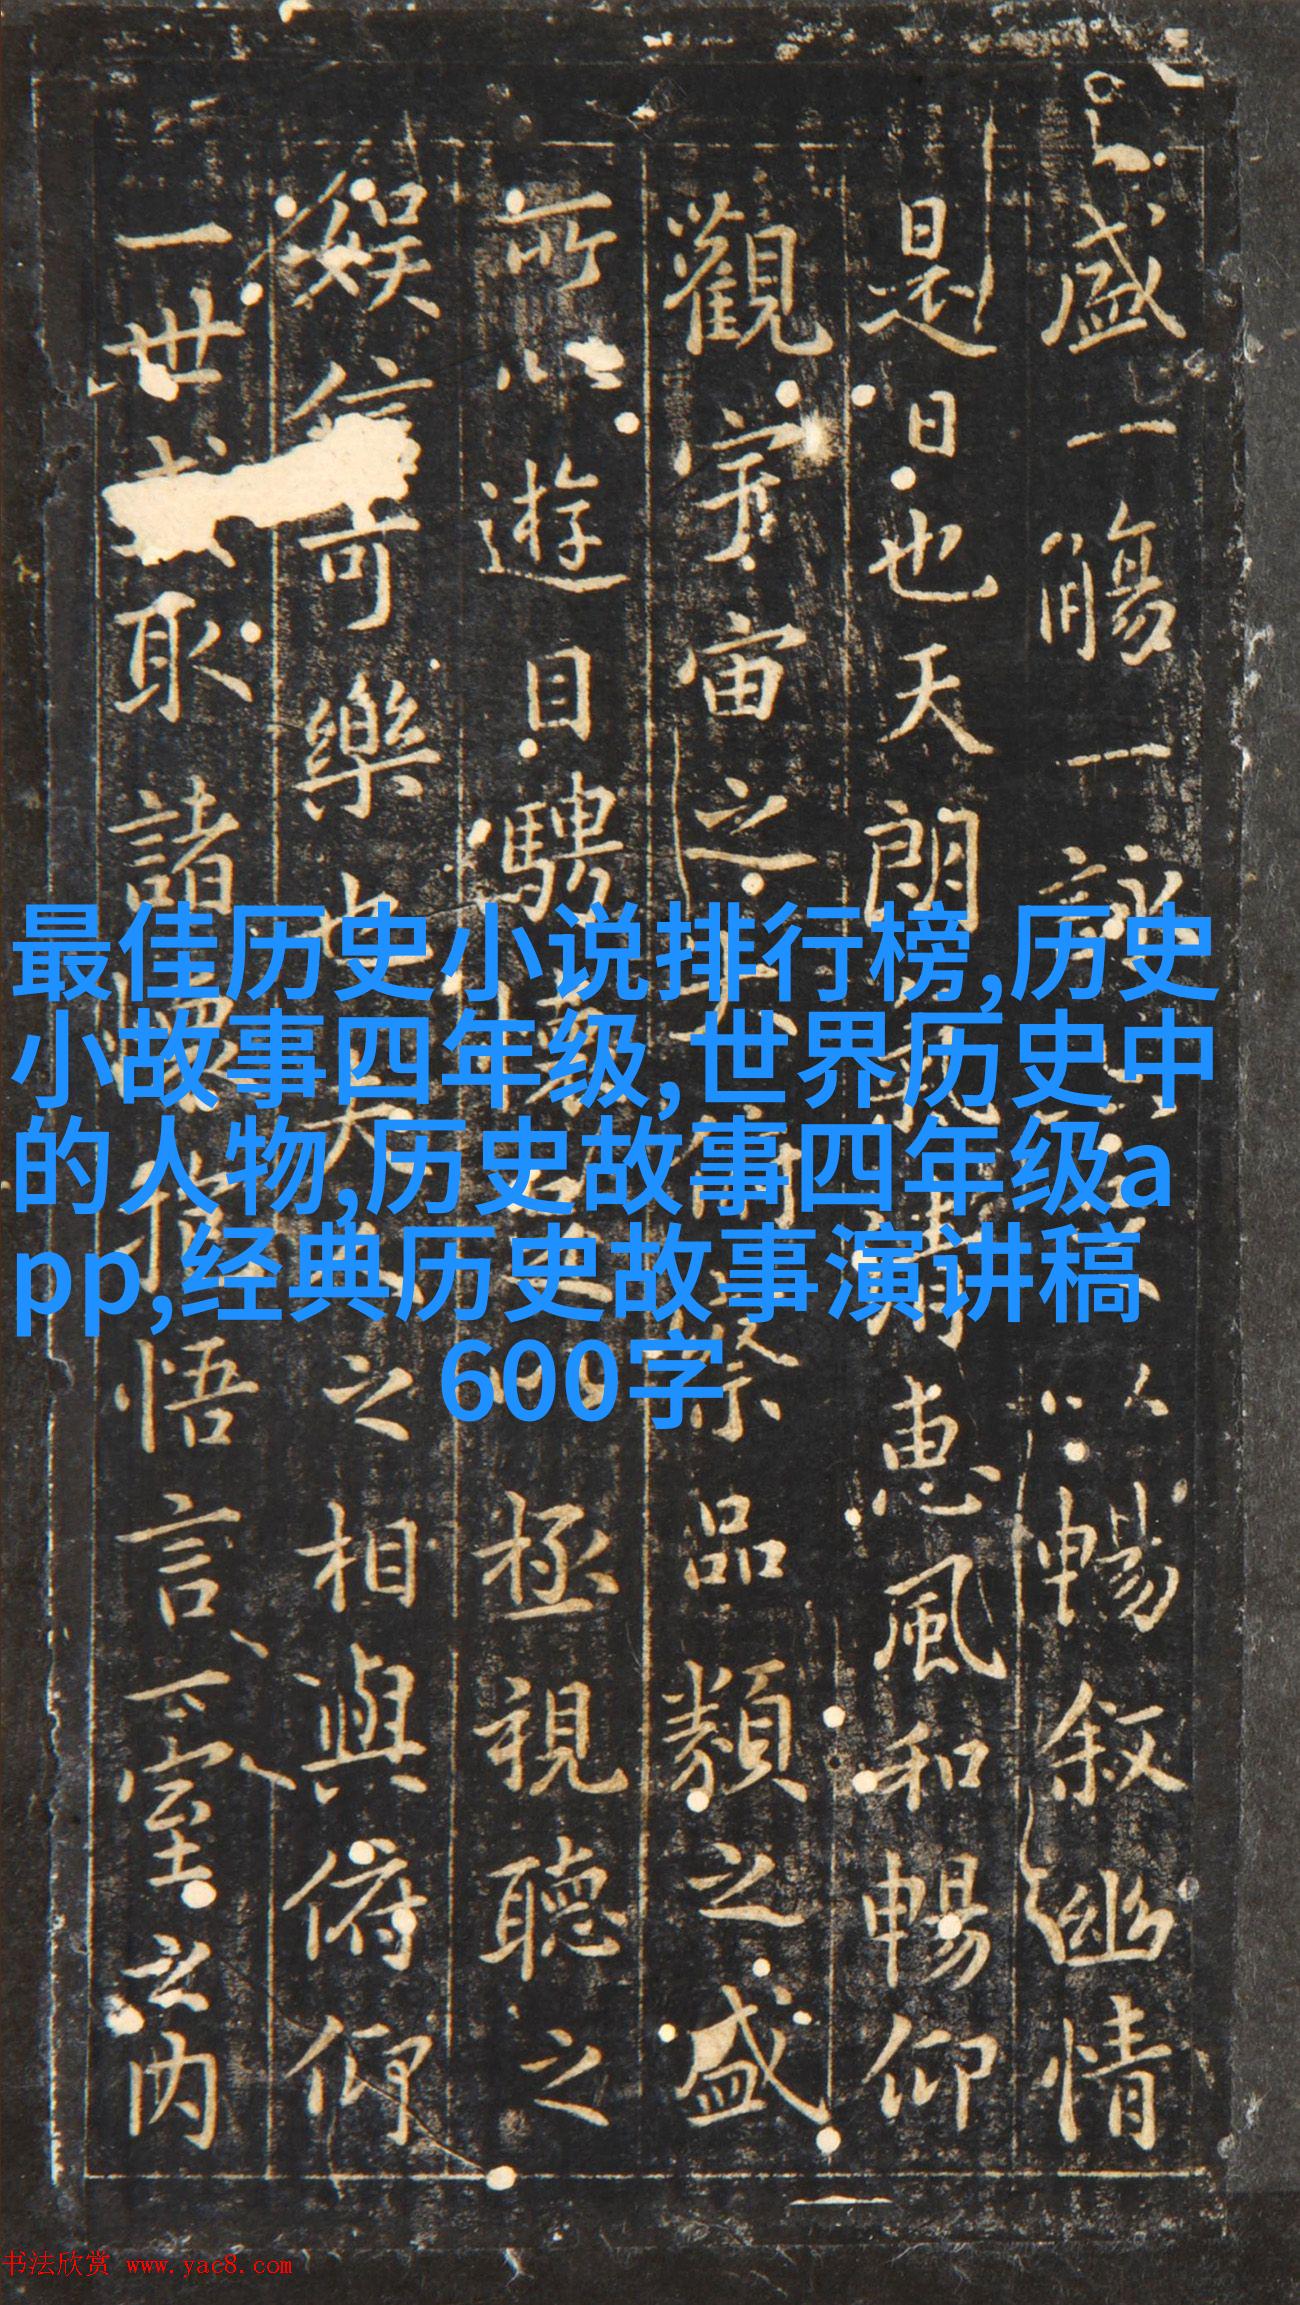 盛一觴一詠以暢敘幽情
是日也天朗氣清惠風和暢仰
觀宇宙之大俯察品類之盛
所以遊目騁懷極視聽之
娛信可樂也夫之相與俯仰
一世或取諸懷抱悟言一室之內
最佳历史小说排行榜,历史
小故事四年级,世界历史中
的人物,历史故事四年级a
pp,经典历史故事演讲稿
600字
书法欣赏 www.yac8.com